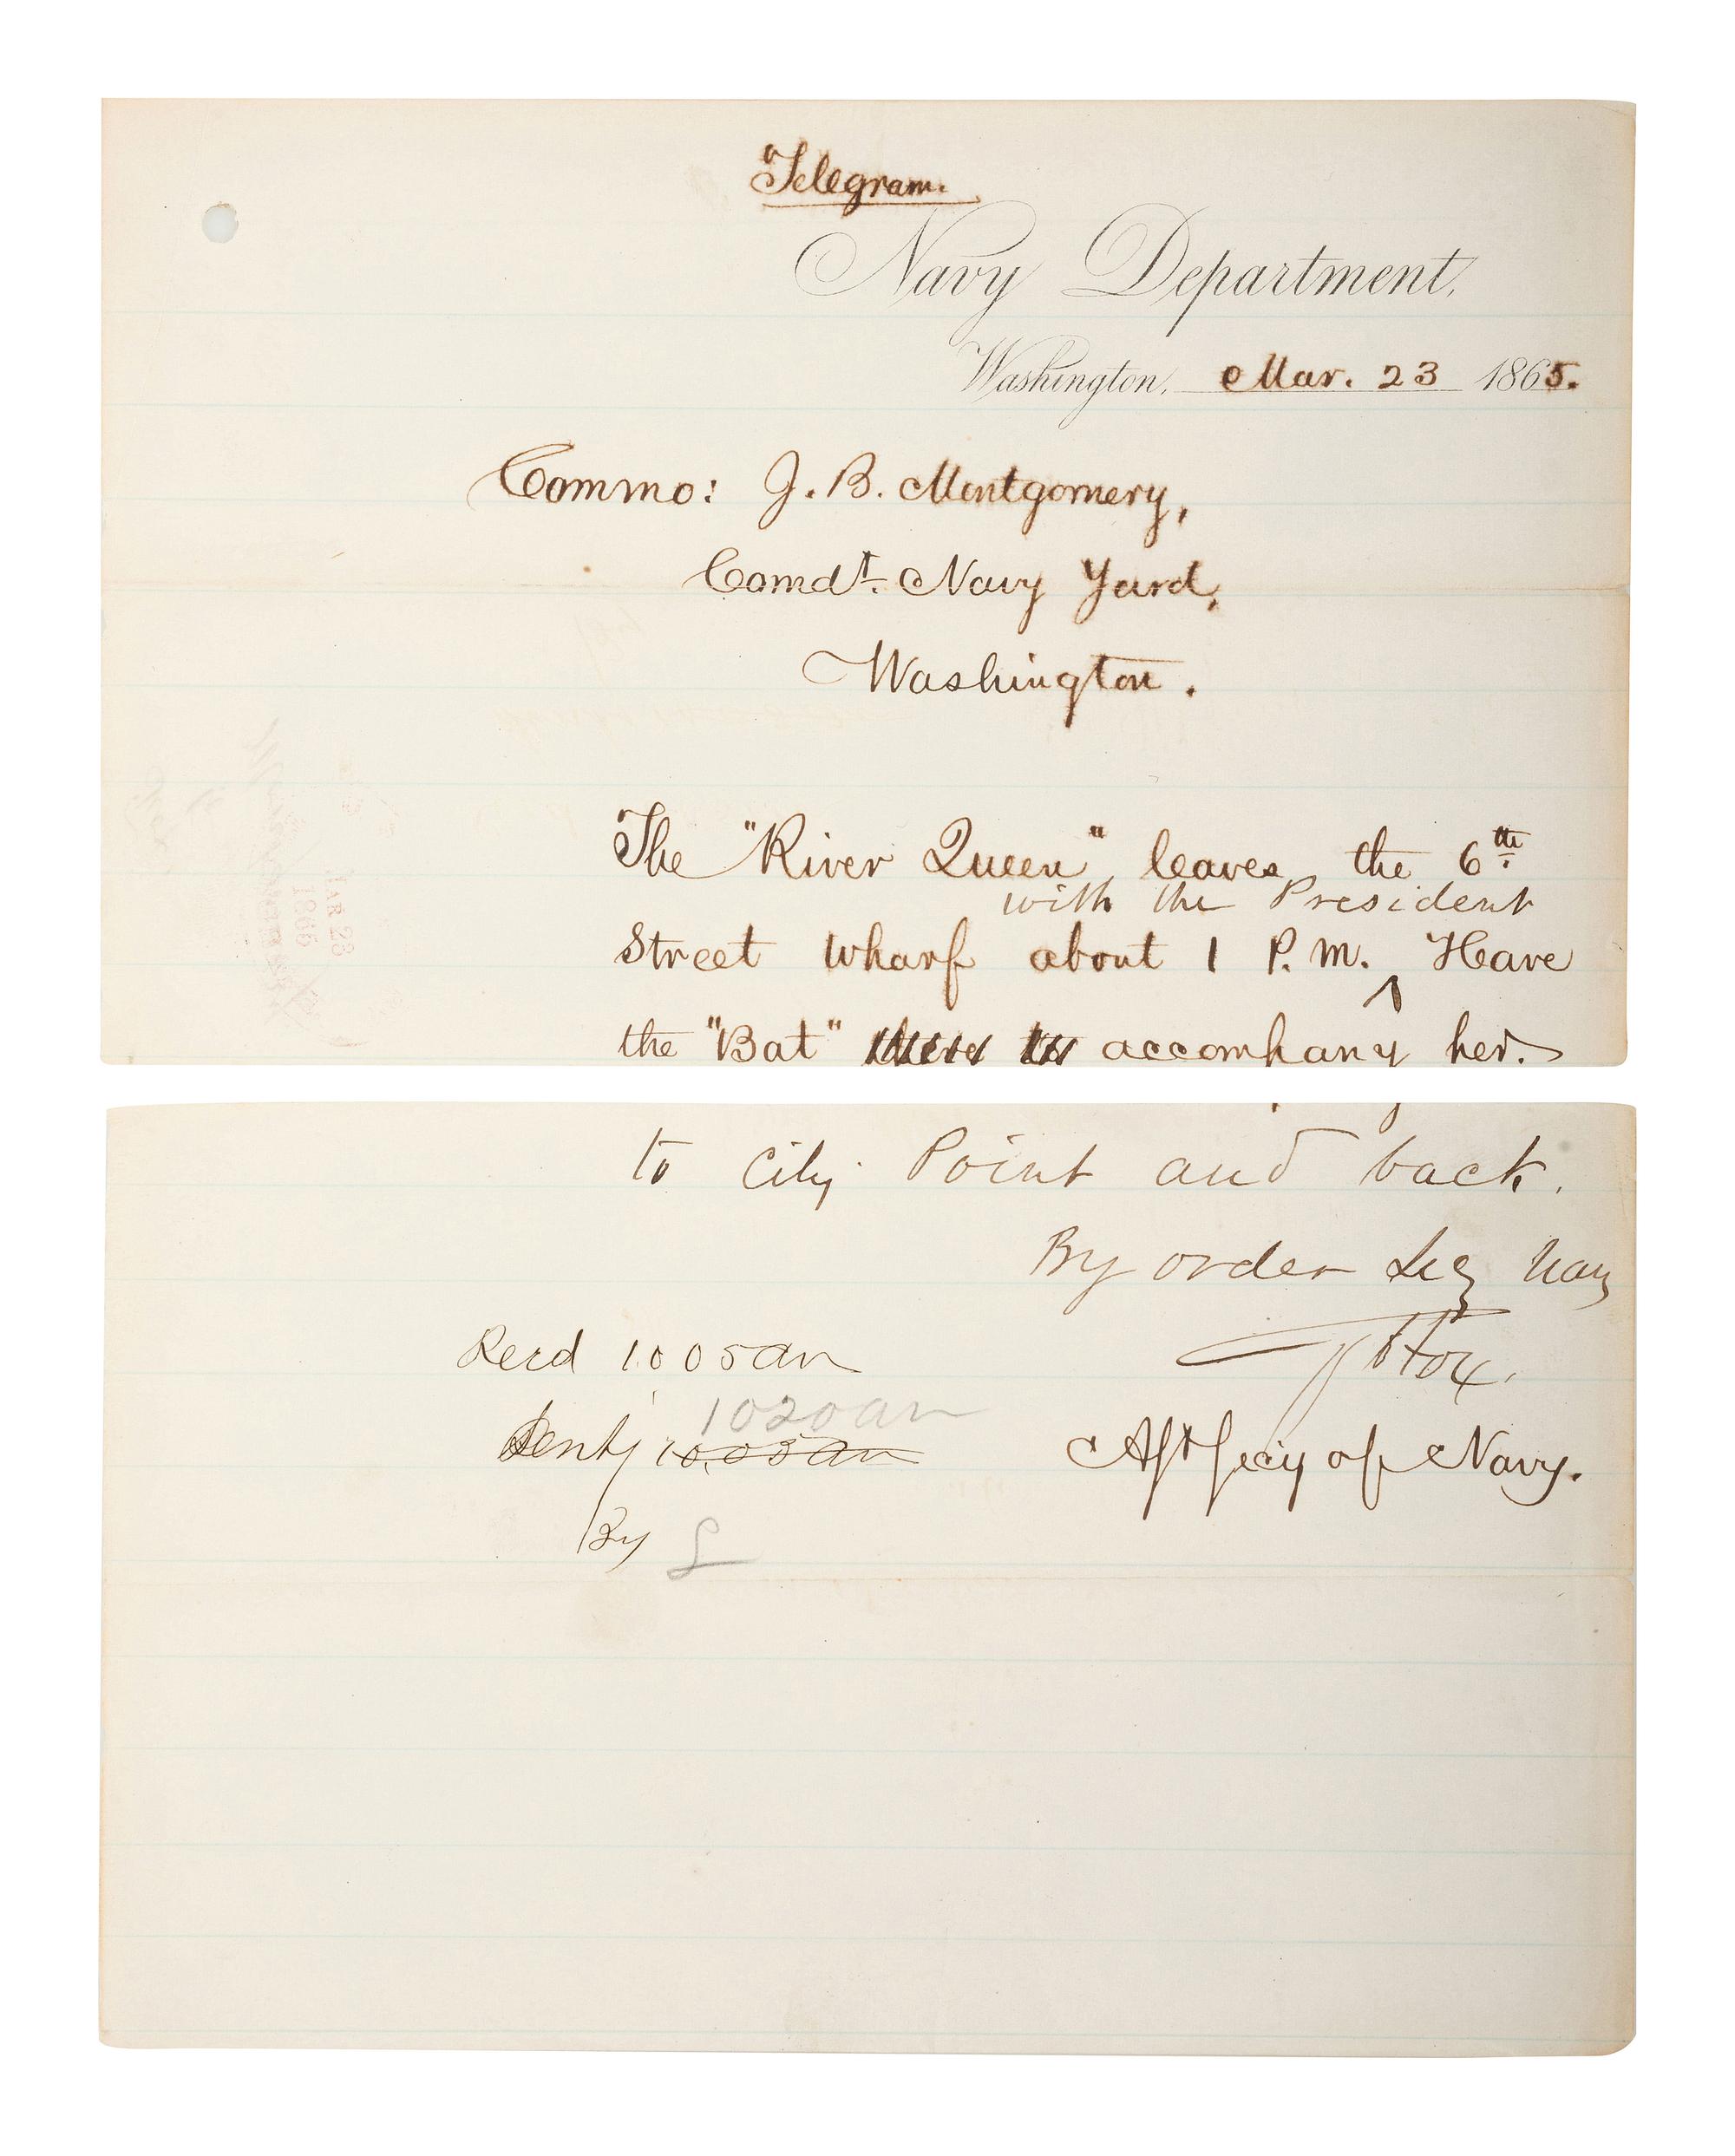 Telegram.
Navy Department,
Washington, Mar. 23 1865.
Commo: J. B. Montgomery,
Comdt. Navy Yard,
Washington.
The "River Queen" leaves the 6th
with the President
Street wharf about 1 P.M. ^ Have
the "Bat" accompany her.
to City Point and back.
By order Secy Navy
Recd 10 05 am
GVFox.
1020 am
Sent 10.05 am
Asst Secy of Navy.
By L
MAR 23
1865